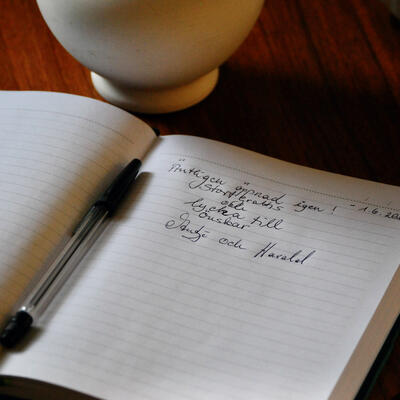 Äntligen öppnad igen! - 1.6.20
Stort Grattis
och
lycka till
önskar
Antje och Harald